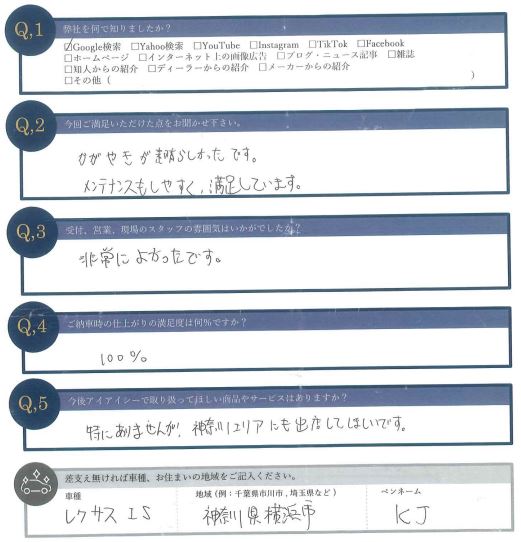 Q,1 弊社を何で知りましたか?
☑Google検索 □Yahoo検索 □YouTube □Instagram □TikTok □Facebook
□ホームページ □インターネット上の画像広告 □ブログ・ニュース記事 □雑誌
□知人からの紹介 □ディーラーからの紹介 □メーカーからの紹介
□その他( )
Q,2 今回ご満足いただけた点をお聞かせ下さい。
かがやきが素晴らしかったです。
メンテナンスもしやすく、満足しています。
Q,3 受付、営業、現場のスタッフの雰囲気はいかがでしたか?
非常によかったです。
Q,4 ご納車時の仕上がりの満足度は何%ですか?
100%
Q,5 今後アイアイシーで取り扱ってほしい商品やサービスはありますか?
特にありませんが、神奈川エリアにも出店してほしいです。
差支え無ければ車種、お住まいの地域をご記入ください。
車種 地域(例:千葉県市川市,埼玉県など) ペンネーム
レクサス IS 神奈川県横浜市 KJ